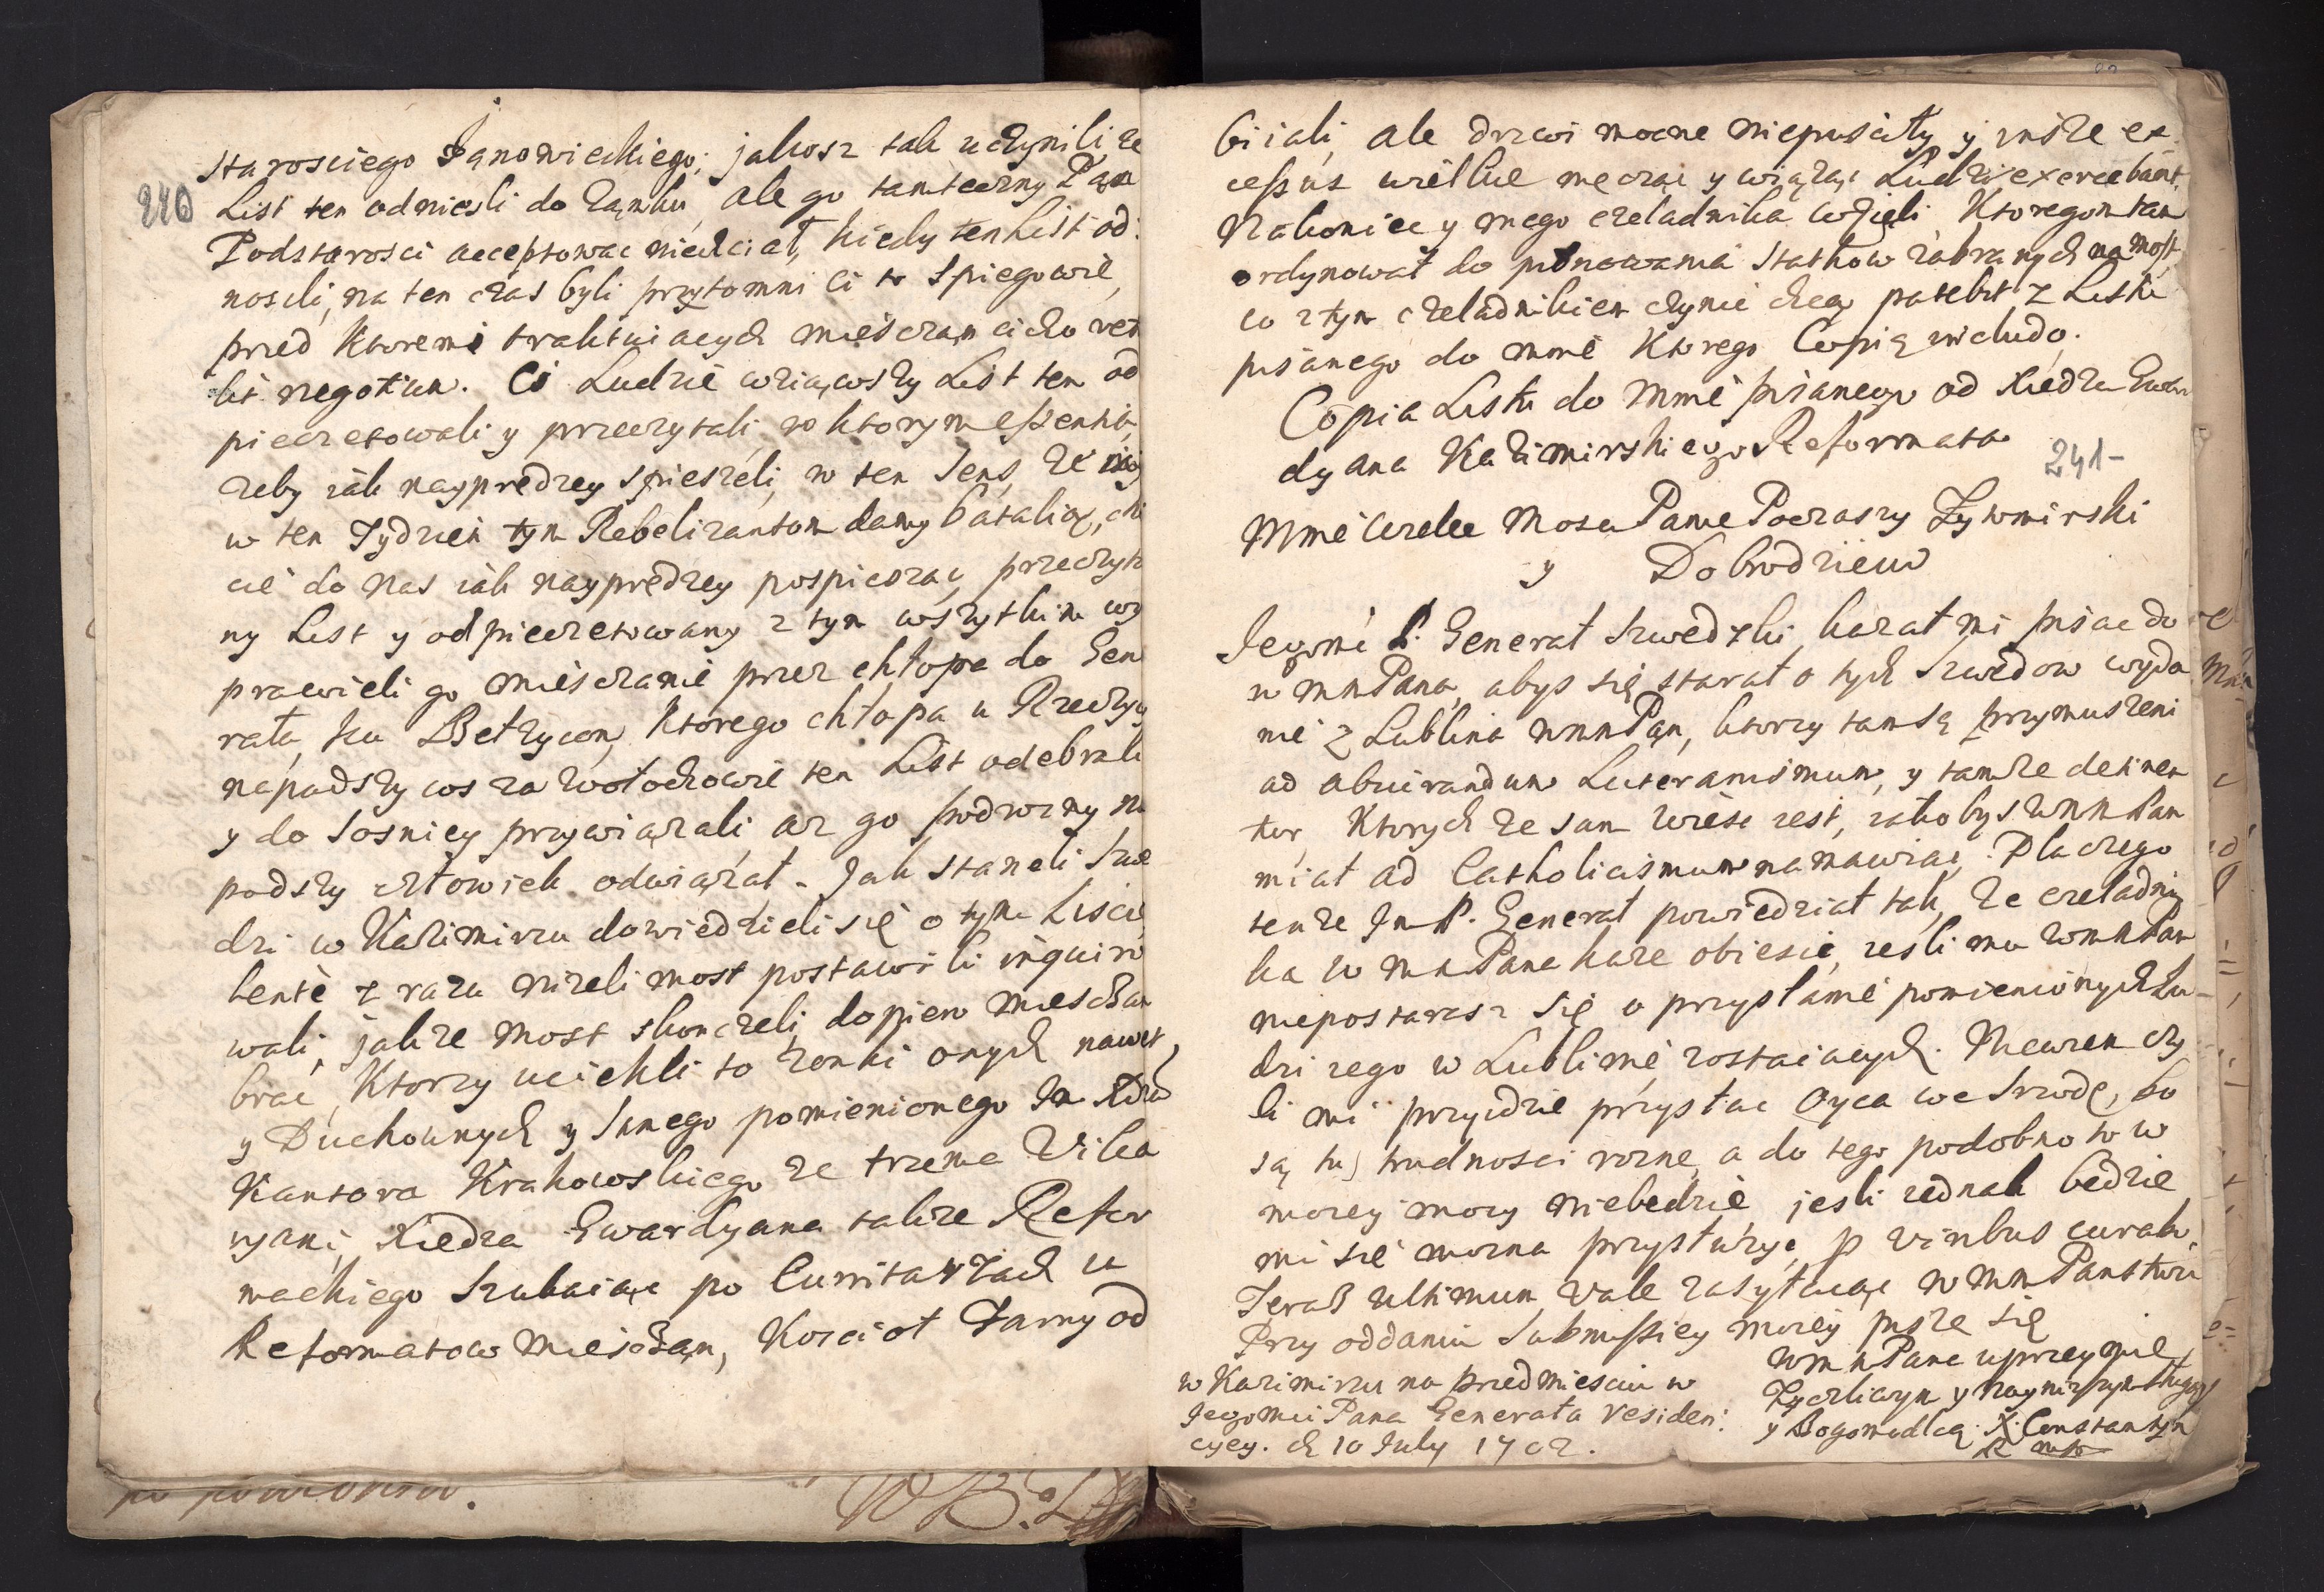 240
Starosciego Janowieckiego; jakosz tak uczynili ze
List ten odniesli do Zamku, ale go tamteczny Pan
Podstarosci acceptowac niechciał, kiedy ten List od:
nosili, na ten czas byli przytomni ci to Spiegowie,
pred Ktoremi traktuiących miesczan cicho ret
lit negotium. Ci Ludzie wziąwszy List ten od
pieczetowali y przeczytali, w ktorym essentia,
zeby iak nayprędzey spieszeli, w ten Sens, ze
w ten Tydzień tym Rebelizantom damy Batalią, chc
cie do nas iak nayprędzey pospieszać, przeczyta
ny List y odpieczetowany z tym wszytkim wy
prawieli go miesczanie przez chłopa do Gen
rała, ku Bełzycom, Ktorego chłopa u Rzeczycy
napadszy cos za Wołochowie ten List odebrali
y do Sosnicy przywiązali, az go podrozny na
padszy człowiek odwiązał. Jak staneli Szwe
dzi w Kazimirzu dowiedzieli się o tym Liscie
lente z razu nizeli most postawili inquiro
wali, jakze most skonczeli, dopiero miesczan
brac, Ktorzy uciekli to zonki onych nawet,
y Duchownych y Samego pomienionego Im Xdza
Kantora Krakowskiego ze trzema Wika
ryami, Xiedza Gwardyana takze Refor
mackiego Szukaiąc po Curritarzach u
Reformatow Miesczan, Koscioł Farny od
biiali, ale drzwi mocne niepusciły, y insze ex:
cessus wielkie męcząc y wiążąc Ludzi exercebant,
Nakoniec y mego czeladnika wzieli Ktoregom tam
ordynował do pilnowania Statkow zabranych na most,
co z tym czeladnikiem czynic chcą patebit z Listu
pisanego do mnie Ktorego Copią includo.
Copia Listu do Mnie pisanego od Xiedza Gwar
dyana Kazimirskiego Reformata
241-
Mnie Wielce Mosci Panie Podczaszy Zytomirski
y Dobrodzieiu
Jegomć P. Generał Szwedzki, kazał mi pisac do
WMMPana, abys się starał o tych Szwedow wyda
nie z Lublina WMMPan, ktorzy tam są przymuszeni
ad abiurandum Luteranismum, y tamze detinen
tur, Ktorych ze sam Wiesc iest, iakobys WMMPan
miał ad Catholicismum namawiac. Dla czego
tenze Im P. Generał powiedział tak, ze czeladni
ka WMMPana kaze obiesic, iesli mu WMMPan
niepostarasz się o przysłanie pomienionych Lu-
dzi iego w Lublinie zostaiących. Niewiem czy
li mi przydzie przysłac Oyca we Srzodę, bo
są tu trudnosci rozne, a do tego podobno to w
moiey mocy niebedzie, jesli iednak bedzie
mi sie mozna przysłużyc, p viribus curabo.
Teraß ultimum Vale zasyłaiąc WMMPanstwu
Przy oddaniu Submissiey moiey piszę się
WMMPana uprzeymie
Zyczliwym y naynizszym sługą
y Bogomodlcą. X. Constantyn
w Kazimirzu na predmiesciu w
Jegomci Pana Generała residen:
cyey. d 10 July 1702.